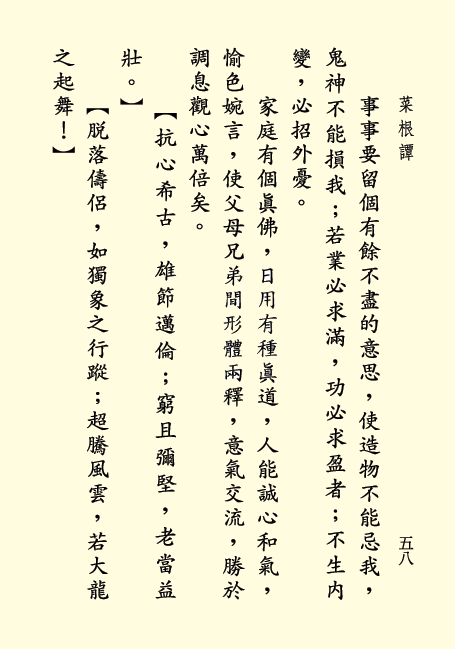 菜根譚
五八
事事要留個有餘不盡的意思，使造物不能忌我，
鬼神不能損我；若業必求滿，功必求盈者；不生内
變，必招外憂。
家庭有個眞佛，日用有種眞道，人能誠心和氣，
愉色婉言，使父母兄弟間形體兩釋，意氣交流，勝於
調息觀心萬倍矣。
【抗心希古，雄節邁倫；窮且彌堅，老當益
壯。】
【脱落儔侶，如獨象之行蹤；超騰風雲，若大龍
之起舞！】